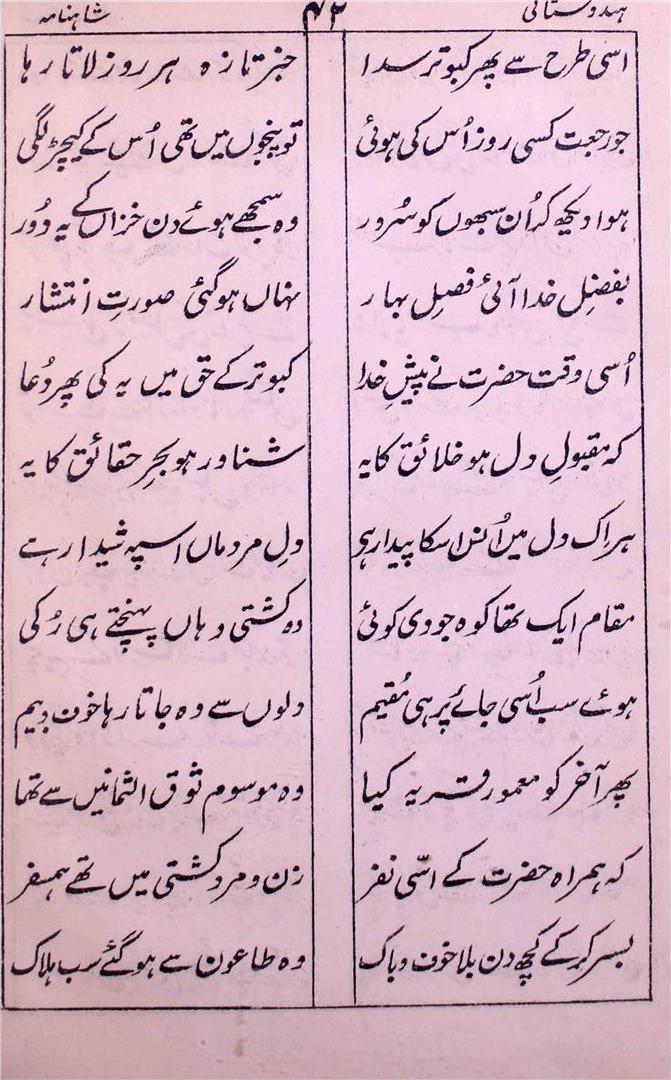 ہندوستانی ۴۲ شاہنامہ
اسی طرح سے پھر کبوتر سدا خبر تازہ ہر روز لاتا رہا
جو رجعت کسی روز اُس کی ہوئی تو پنجوں میں تھی اُس کے کیچڑ لگی
ہوا دیکھ کر اُن سبھوں کو سُرور وہ سمجھے ہوئے دن خزاں کے یہ دُور
بفضلِ خدا آئی فصلِ بہار نہاں ہو گئی صورتِ انتشار
اُسی وقت حضرت نے پیشِ خدا کبوتر کے حق میں یہ کی پھر دُعا
کہ مقبولِ دل ہو خلائق کا یہ شناور ہو بحرِ حقائق کا یہ
ہر اک دل میں اُنس اسکا پیدا رہے دلِ مردماں اسپہ شیدا رہے
مقام ایک تھا کوہ جودی کوئی وہ کشتی وہاں پہنچتے ہی رُکی
ہوئے سب اُسی جائے پر ہی مُقیم دلوں سے وہ جاتا رہا خوف و بیم
پھر آخر کو معمور قریہ کیا وہ موسوم ثوق الثمانیں سے تھا
کہ ہمراہ حضرت کے اسّی نفر زن و مرد کشتی میں تھے ہمسفر
بسر کر کے کچھ دن بلا خوف و باک وہ طاعون سے ہو گئے سب ہلاک